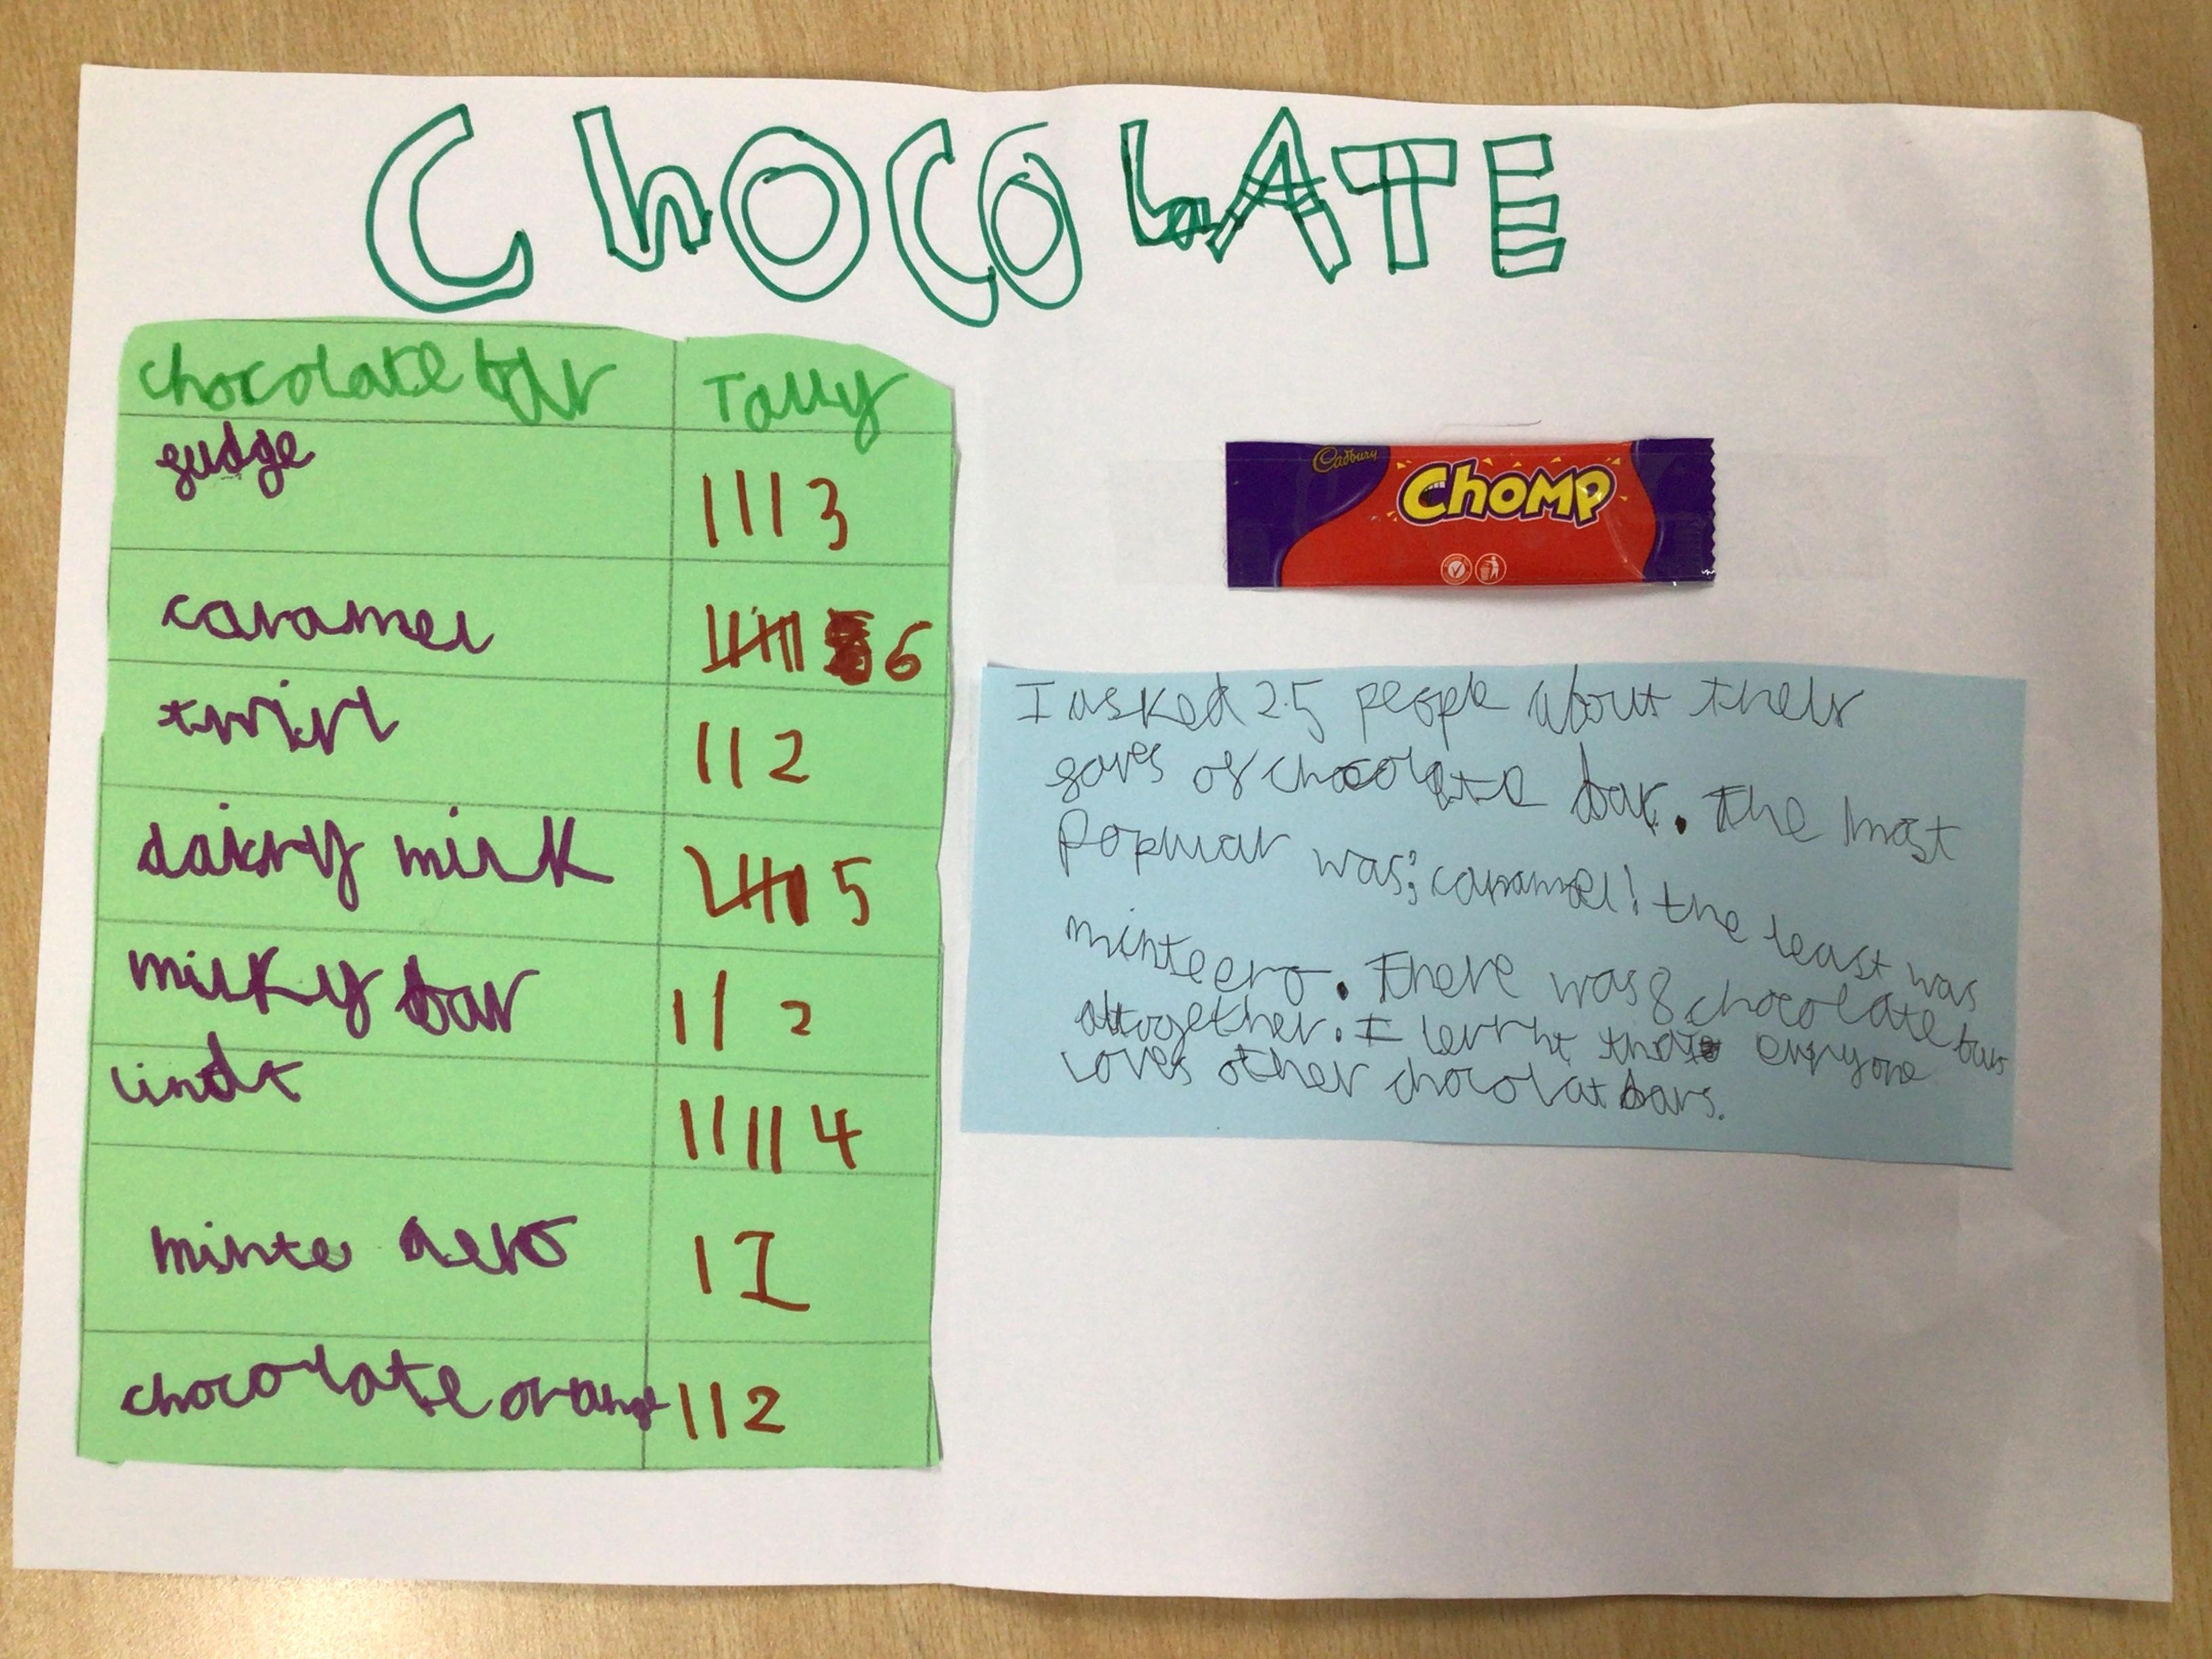 ChOCOLATE
chocolate bar Tally
fudge
III 3
caramel
6
twirl
II 2
dairy milk
5
milky bar
II 2
lindt
IIII 4
minte aero
I I
chocolate orange II 2
Cadbury
Chomp
I asked 25 people about their
faves of chocolate bar. The most
Popular was; caramel! the least was
minteero. There was 8 chocolate bars
altogether. I lernht that everyone
loves other chocolat bars.